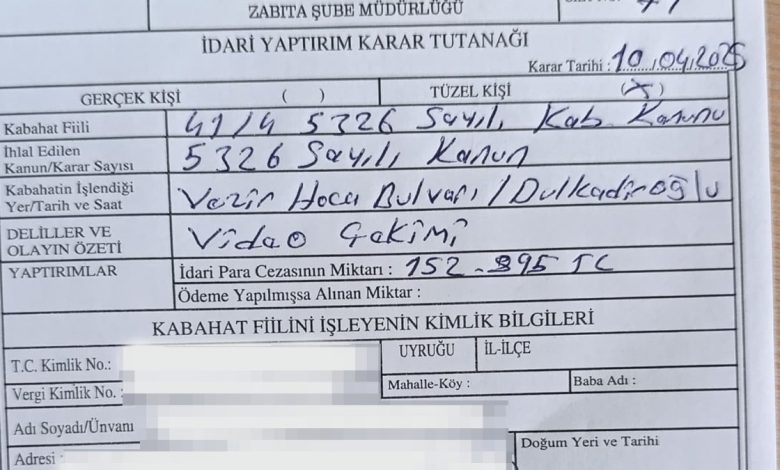 ZABITA ŞUBE MÜDÜRLÜĞÜ
İDARİ YAPTIRIM KARAR TUTANAĞI
Karar Tarihi : 10.04.2025
GERÇEK KİŞİ ( ) TÜZEL KİŞİ (X)
Kabahat Fiili 41/4 5326 Sayılı Kab Kanunu
İhlal Edilen
Kanun/Karar Sayısı 5326 Sayılı Kanun
Kabahatin İşlendiği
Yer/Tarih ve Saat Vezir Hoca Bulvarı / Dulkadiroğlu
DELİLLER VE
OLAYIN ÖZETİ Vidao Çekimi
YAPTIRIMLAR İdari Para Cezasının Miktarı : 152.895 TL
Ödeme Yapılmışsa Alınan Miktar :
KABAHAT FİİLİNİ İŞLEYENİN KİMLİK BİLGİLERİ
T.C. Kimlik No.: UYRUĞU İL-İLÇE
Vergi Kimlik No. : Mahalle-Köy : Baba Adı :
Adı Soyadı/Ünvanı
Doğum Yeri ve Tarihi
Adresi :